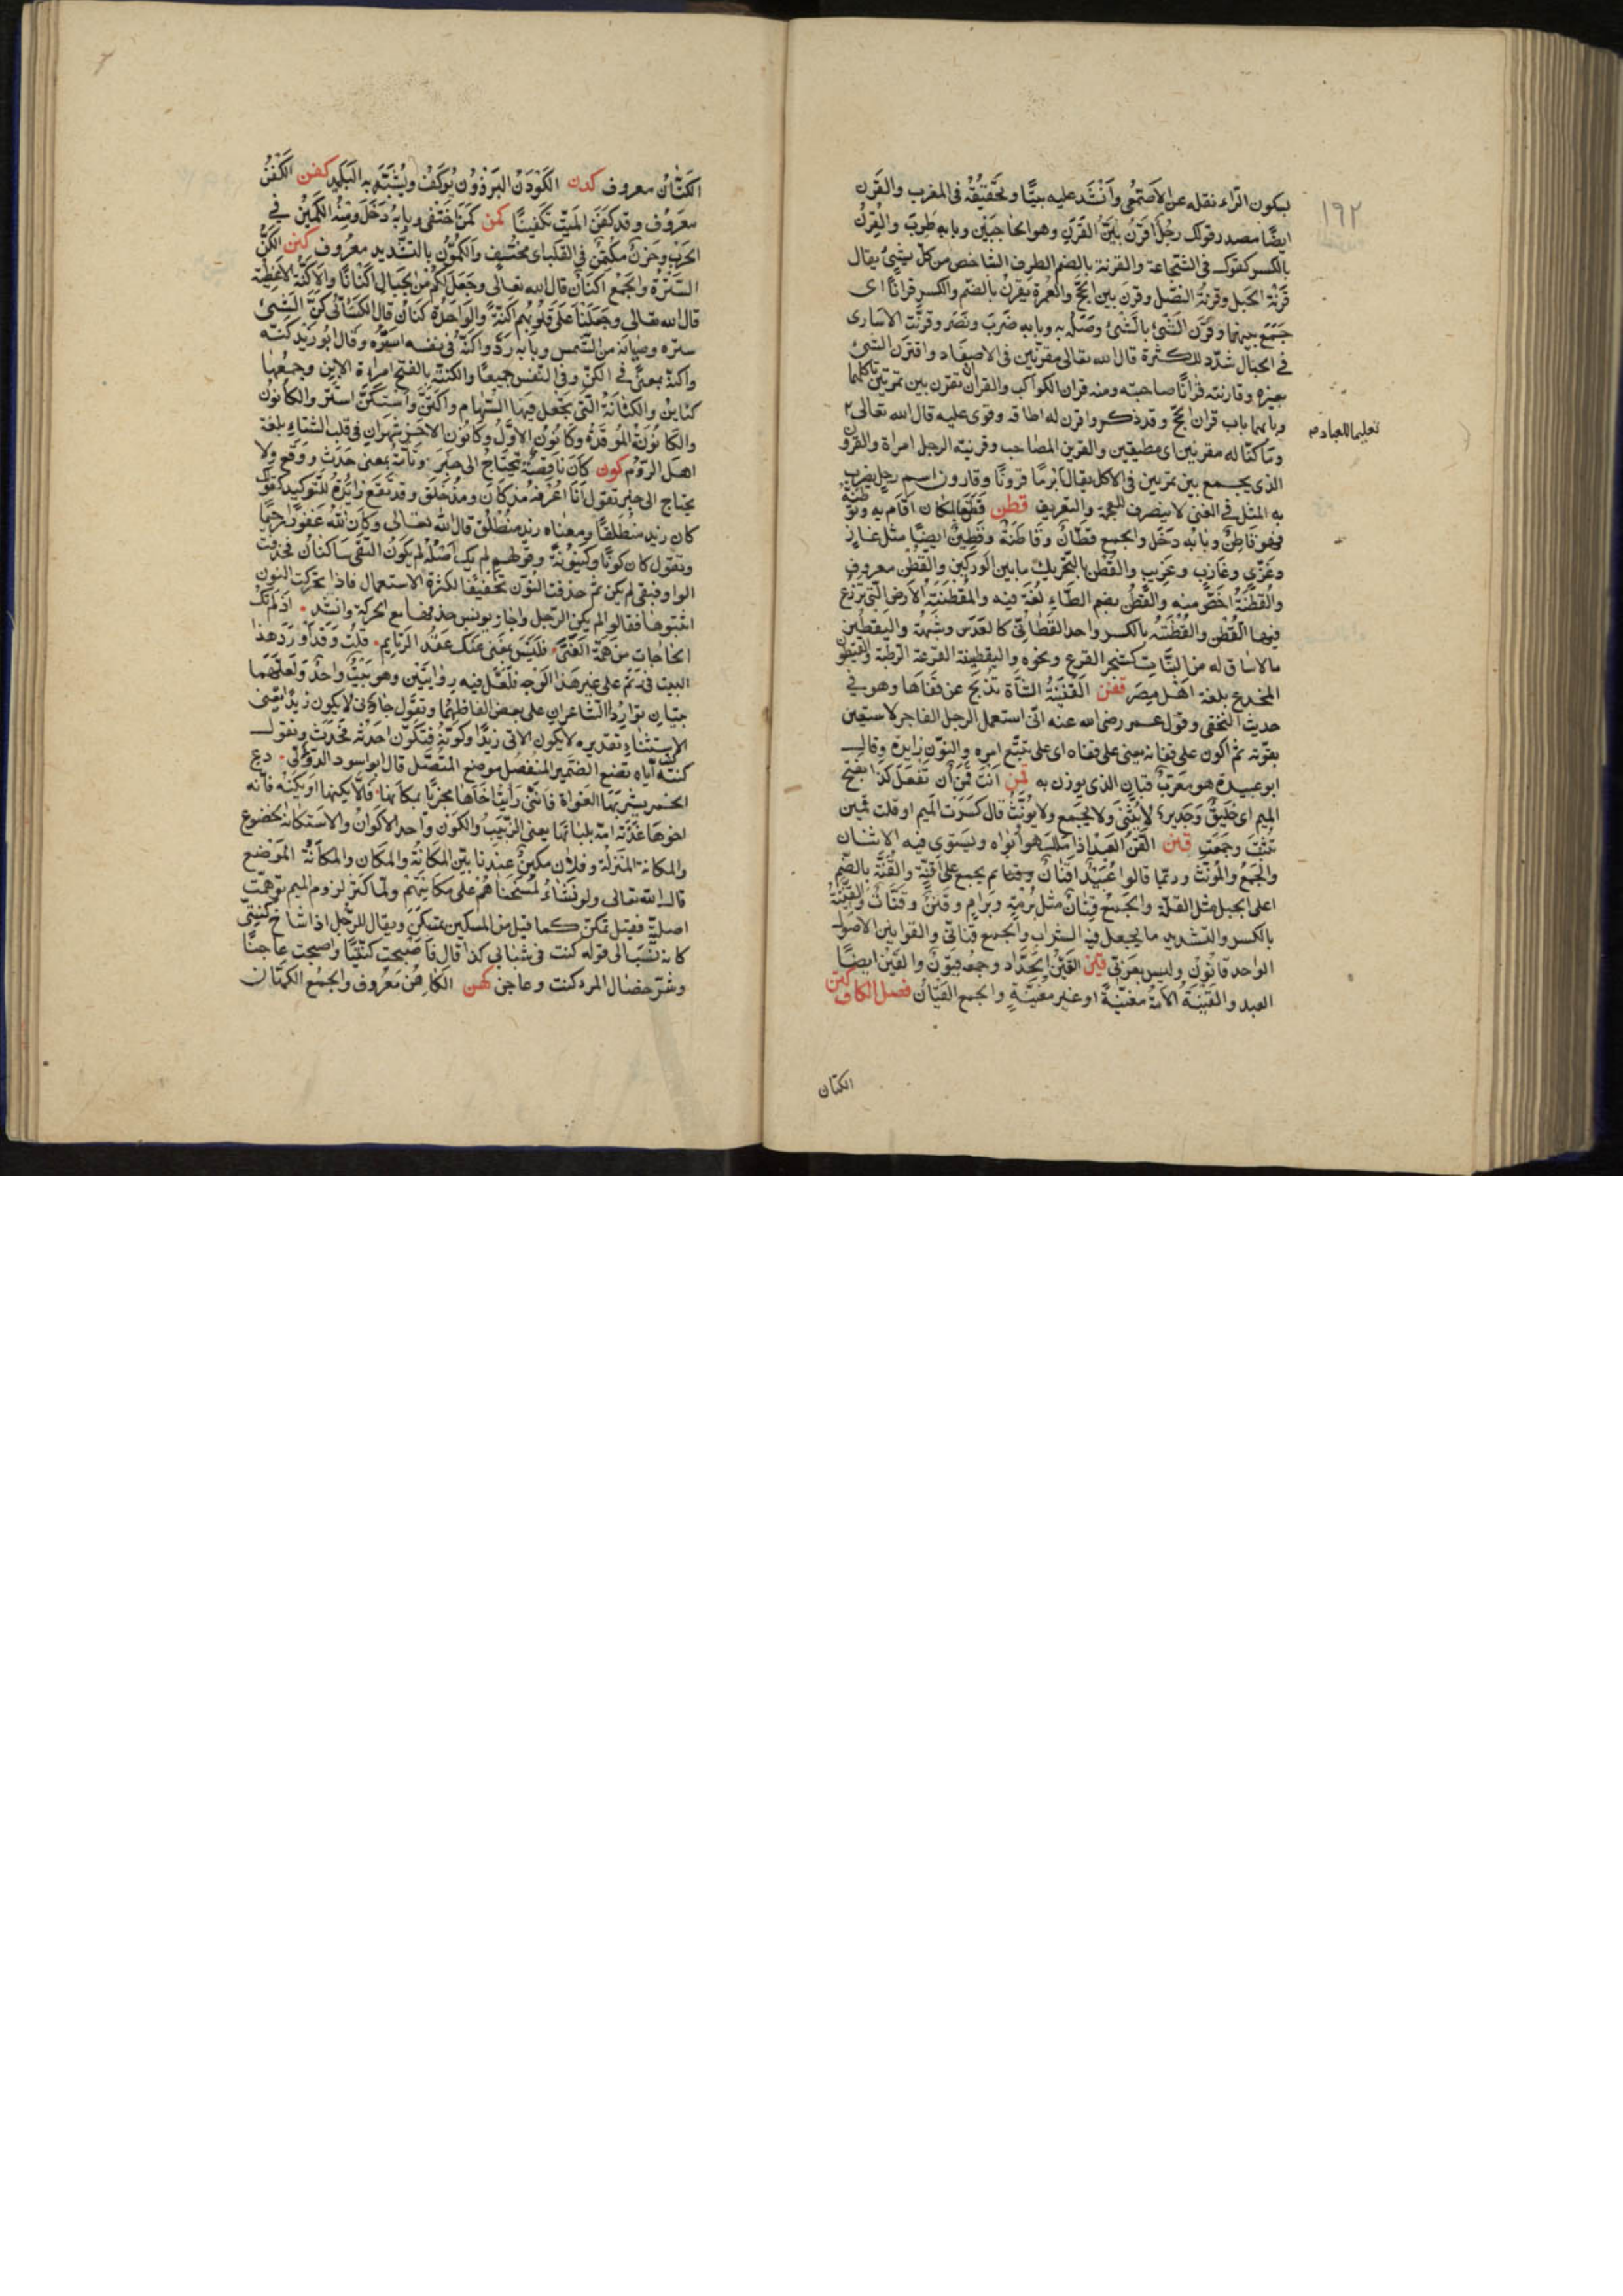 ١٩٢
بسكون الراء نقله عن الاصمعى وانشد عليه بيتا وتحقيقه فى المغرب والقرن
ايضا مصدر قولك رجل اقرن بين القرن وهو الحاجبين وبابه طرب والقرن
بالكسر كفوك فى الشجاعة والقرنة بالضم الطرف الشاخص من كل شئ يقال
قرنة الجبل وقرنة النصل وقرن بين الحج والعمرة يقرن بالضم والكسر قرانا اى
جمع بينهما وقرن الشئ بالشئ وصله به وبابه ضرب ونصر وقرنت الاسارى
فى الحبال شدد للكثرة قال الله تعالى مقرنين فى الاصفاد واقترن الشئ
بغيره وقارنته قرانا صاحبته ومنه قران الكواكب والقران تقرن بين تمرتين تاكلهما
وبابهما باب قران الحج وقد ذكر واقرن له اطاقه وقوى عليه قال الله تعالى
تعليما للعباد
وما كنا له مقرنين اى مطيقين والقرين المصاحب وقرينة الرجل امراة والقرون
الذى يجمع بين تمرتين فى الاكل يقال ابرما قرونا وقارون اسم رجل يضرب
به المثل فى الغنى لا ينصرف للعجمة والتعريف قطن قطن بالمكان اقام به وتوطنه
فهو قاطن وبابه دخل والجمع قطان وقاطنة وقطين ايضا مثل غاز
وغزى وعازب وعزيب والقطن بالتحريك ما بين الوركين والقطن معروف
والقطنة اخص منه والقطن بضم الطاء لغة فيه والمقطنة الارض التى تزرع
فيها القطن والقطنة بالكسر واحد القطانى كالعدس وشبهه واليقطين
ما لا ساق له من النبات كشجر القرع ونحوه واليقطينة القرعة الرطبة والقيطون
المخدع بلغة اهل مصر قفن القفينة الشاة تذبح عن قفاها وهو فى
حديث النخعى وقول عمر رضى الله عنه انى استعمل الرجل الفاجر لاستعين
بقوته ثم اكون على قفانه يعنى على قفاه اى على تتبع امره والنون زايدة وقال
ابو عبيدة هو معرب قبان الذى يوزن به قمن انت قمن ان تفعل كذا بفتح
الميم اى خليق وجدير لا يثنى ولا يجمع ولا يؤنث قال كسرت الميم او قلت قمين
ثنيت وجمعت قنن القن العبد اذا ملك هو وابواه ويستوى فيه الاثنان
والجمع والمؤنث وربما قالوا عبيد اقنان ثم يجمع على اقنة والقنة بالضم
اعلى الجبل مثل القلة والجمع قنان مثل برمة وبرام وقنن وقنات والقنينة
بالكسر والتشديد ما يجعل فيه الشراب والجمع قنانى والقوانين الاصول
الواحد قانون وليس بعربى قين القين الحداد وجمعه قيون والقين ايضا
العبد والقينة الامة مغنية او غير مغنية والجمع القيان فصل الكاف كتن
الكتان
الكتان معروف كدن الكودن البرذون يوكف ويشبه به البليد كفن الكفن
معروف وقد كفن الميت تكفينا كمن كمن اختفى وبابه دخل ومنه الكمين فى
الحرب وحزن مكتمن فى القلب اى مختف والكمون بالتشديد معروف كنن الكن
السترة والجمع اكنان قال الله تعالى وجعل لكم من الجبال اكنانا والاكنة الاغطية
قال الله تعالى وجعلنا على قلوبهم اكنة والواحد كنان قال الكسائى كن الشئ
ستره وصانه من الشمس وبابه رد واكنه فى نفسه اسره وقال ابو زيد كنه
واكنه بمعنى فى الكن وفى النفس جميعا والكنة بالفتح امراة الابن وجمعها
كناين والكنانة التى يجعل فيها السهام واكتن واستكن استتر والكانون
والكانونة الموقدة وكانون الاول وكانون الاخر شهران فى قلب الشتاء بلغة
اهل الروم كون كان ناقصة تحتاج الى خبر وتامة بمعنى حدث ووقع ولا
يحتاج الى خبر تقول انا اعرفه مذ كان ومذ خلق وقد تقع زايدة للتوكيد كقولك
كان زيد منطلقا ومعناه زيد منطلق قال الله تعالى وكان الله غفورا رحيما
وتقول كان كونا وكينونة وقولهم لم يك اصله لم يكون التقى ساكنان فحذفت
الواو فبقى لم يكن ثم حذفت النون تخفيفا لكثرة الاستعمال فاذا تحركت النون
اثبتوها فقالوا لم يكن الرجل واجاز يونس حذفها مع الحركة وانشد اذا لم تك
الحاجات من همة الفتى فليس بمغن عنك عقد الرتايم قلت وقد اورد هذا
البيت فى رتم على غير هذا الوجه فلعل فيه روايتين وهو بيت واحد ولعلهما
بيتان توارد الشاعران على بعض الفاظهما وتقول جاؤنى لا يكون زيدا يعنى
الاستثناء تقديره لا يكون الاتى زيدا وكونه فتكون احدثه فحدث وتقول
كنته وكنت اياه تضع الضمير المنفصل موضع المتصل قال ابو اسود الدؤلى دع
الخمر يشربها الغواة فاننى رايت اخاها مجزيا بمكانها فالا يكنها او تكنه فانه
اخوها غذته امه بلبانها يعنى الزبيب والكون واحد الاكوان والاستكانة الخضوع
والمكانة المنزلة وفلان مكين عندنا بين المكانة والمكان والمكانة الموضع
قال الله تعالى ولو نشاء لمسخناهم على مكانتهم ولما كثر لزوم الميم توهمت
اصلية فقيل تمكن كما قيل من المسكين تمسكن ويقال للرجل اذا شاخ كنتى
كانه نسب الى قوله كنت فى شبابى كذا قال فاصبحت كنتيا واصبحت عاجنا
وشر خصال المرء كنت وعاجن كهن الكاهن معروف والجمع الكهان